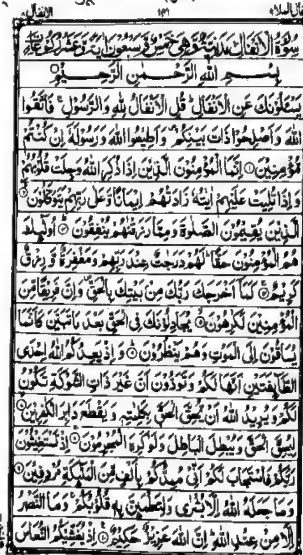 قال الملا ١٤١ الانفال
سُوْرَةُ الْاَنْفَالِ مَدَنِيَّةٌ وَّهِيَ خَمْسٌ وَّسَبْعُوْنَ اٰيَةً وَّعَشْرُ رُكُوْعَاتٍ
بِسْمِ اللّٰهِ الرَّحْمٰنِ الرَّحِيْمِ
يَسْـَٔلُوْنَكَ عَنِ الْاَنْفَالِ قُلِ الْاَنْفَالُ لِلّٰهِ وَالرَّسُوْلِ فَاتَّقُوا
اللّٰهَ وَاَصْلِحُوْا ذَاتَ بَيْنِكُمْ وَاَطِيْعُوا اللّٰهَ وَرَسُوْلَهٗ اِنْ كُنْتُمْ
مُّؤْمِنِيْنَ ۝۱ اِنَّمَا الْمُؤْمِنُوْنَ الَّذِيْنَ اِذَا ذُكِرَ اللّٰهُ وَجِلَتْ قُلُوْبُهُمْ
وَاِذَا تُلِيَتْ عَلَيْهِمْ اٰيٰتُهٗ زَادَتْهُمْ اِيْمَانًا وَّعَلٰى رَبِّهِمْ يَتَوَكَّلُوْنَ ۝۲
الَّذِيْنَ يُقِيْمُوْنَ الصَّلٰوةَ وَمِمَّا رَزَقْنٰهُمْ يُنْفِقُوْنَ ۝۳ اُولٰٓئِكَ
هُمُ الْمُؤْمِنُوْنَ حَقًّا لَهُمْ دَرَجٰتٌ عِنْدَ رَبِّهِمْ وَمَغْفِرَةٌ وَّرِزْقٌ
كَرِيْمٌ ۝۴ كَمَآ اَخْرَجَكَ رَبُّكَ مِنْۢ بَيْتِكَ بِالْحَقِّ وَاِنَّ فَرِيْقًا مِّنَ
الْمُؤْمِنِيْنَ لَكٰرِهُوْنَ ۝۵ يُجَادِلُوْنَكَ فِى الْحَقِّ بَعْدَ مَا تَبَيَّنَ كَاَنَّمَا
يُسَاقُوْنَ اِلَى الْمَوْتِ وَهُمْ يَنْظُرُوْنَ ۝۶ وَاِذْ يَعِدُكُمُ اللّٰهُ اِحْدَى
الطَّآئِفَتَيْنِ اَنَّهَا لَكُمْ وَتَوَدُّوْنَ اَنَّ غَيْرَ ذَاتِ الشَّوْكَةِ تَكُوْنُ
لَكُمْ وَيُرِيْدُ اللّٰهُ اَنْ يُّحِقَّ الْحَقَّ بِكَلِمٰتِهٖ وَيَقْطَعَ دَابِرَ الْكٰفِرِيْنَ ۝۷
لِيُحِقَّ الْحَقَّ وَيُبْطِلَ الْبَاطِلَ وَلَوْ كَرِهَ الْمُجْرِمُوْنَ ۝۸ اِذْ تَسْتَغِيْثُوْنَ
رَبَّكُمْ فَاسْتَجَابَ لَكُمْ اَنِّيْ مُمِدُّكُمْ بِاَلْفٍ مِّنَ الْمَلٰٓئِكَةِ مُرْدِفِيْنَ ۝۹
وَمَا جَعَلَهُ اللّٰهُ اِلَّا بُشْرٰى وَلِتَطْمَئِنَّ بِهٖ قُلُوْبُكُمْ وَمَا النَّصْرُ
اِلَّا مِنْ عِنْدِ اللّٰهِ اِنَّ اللّٰهَ عَزِيْزٌ حَكِيْمٌ ۝۱۰ اِذْ يُغَشِّيْكُمُ النُّعَاسَ